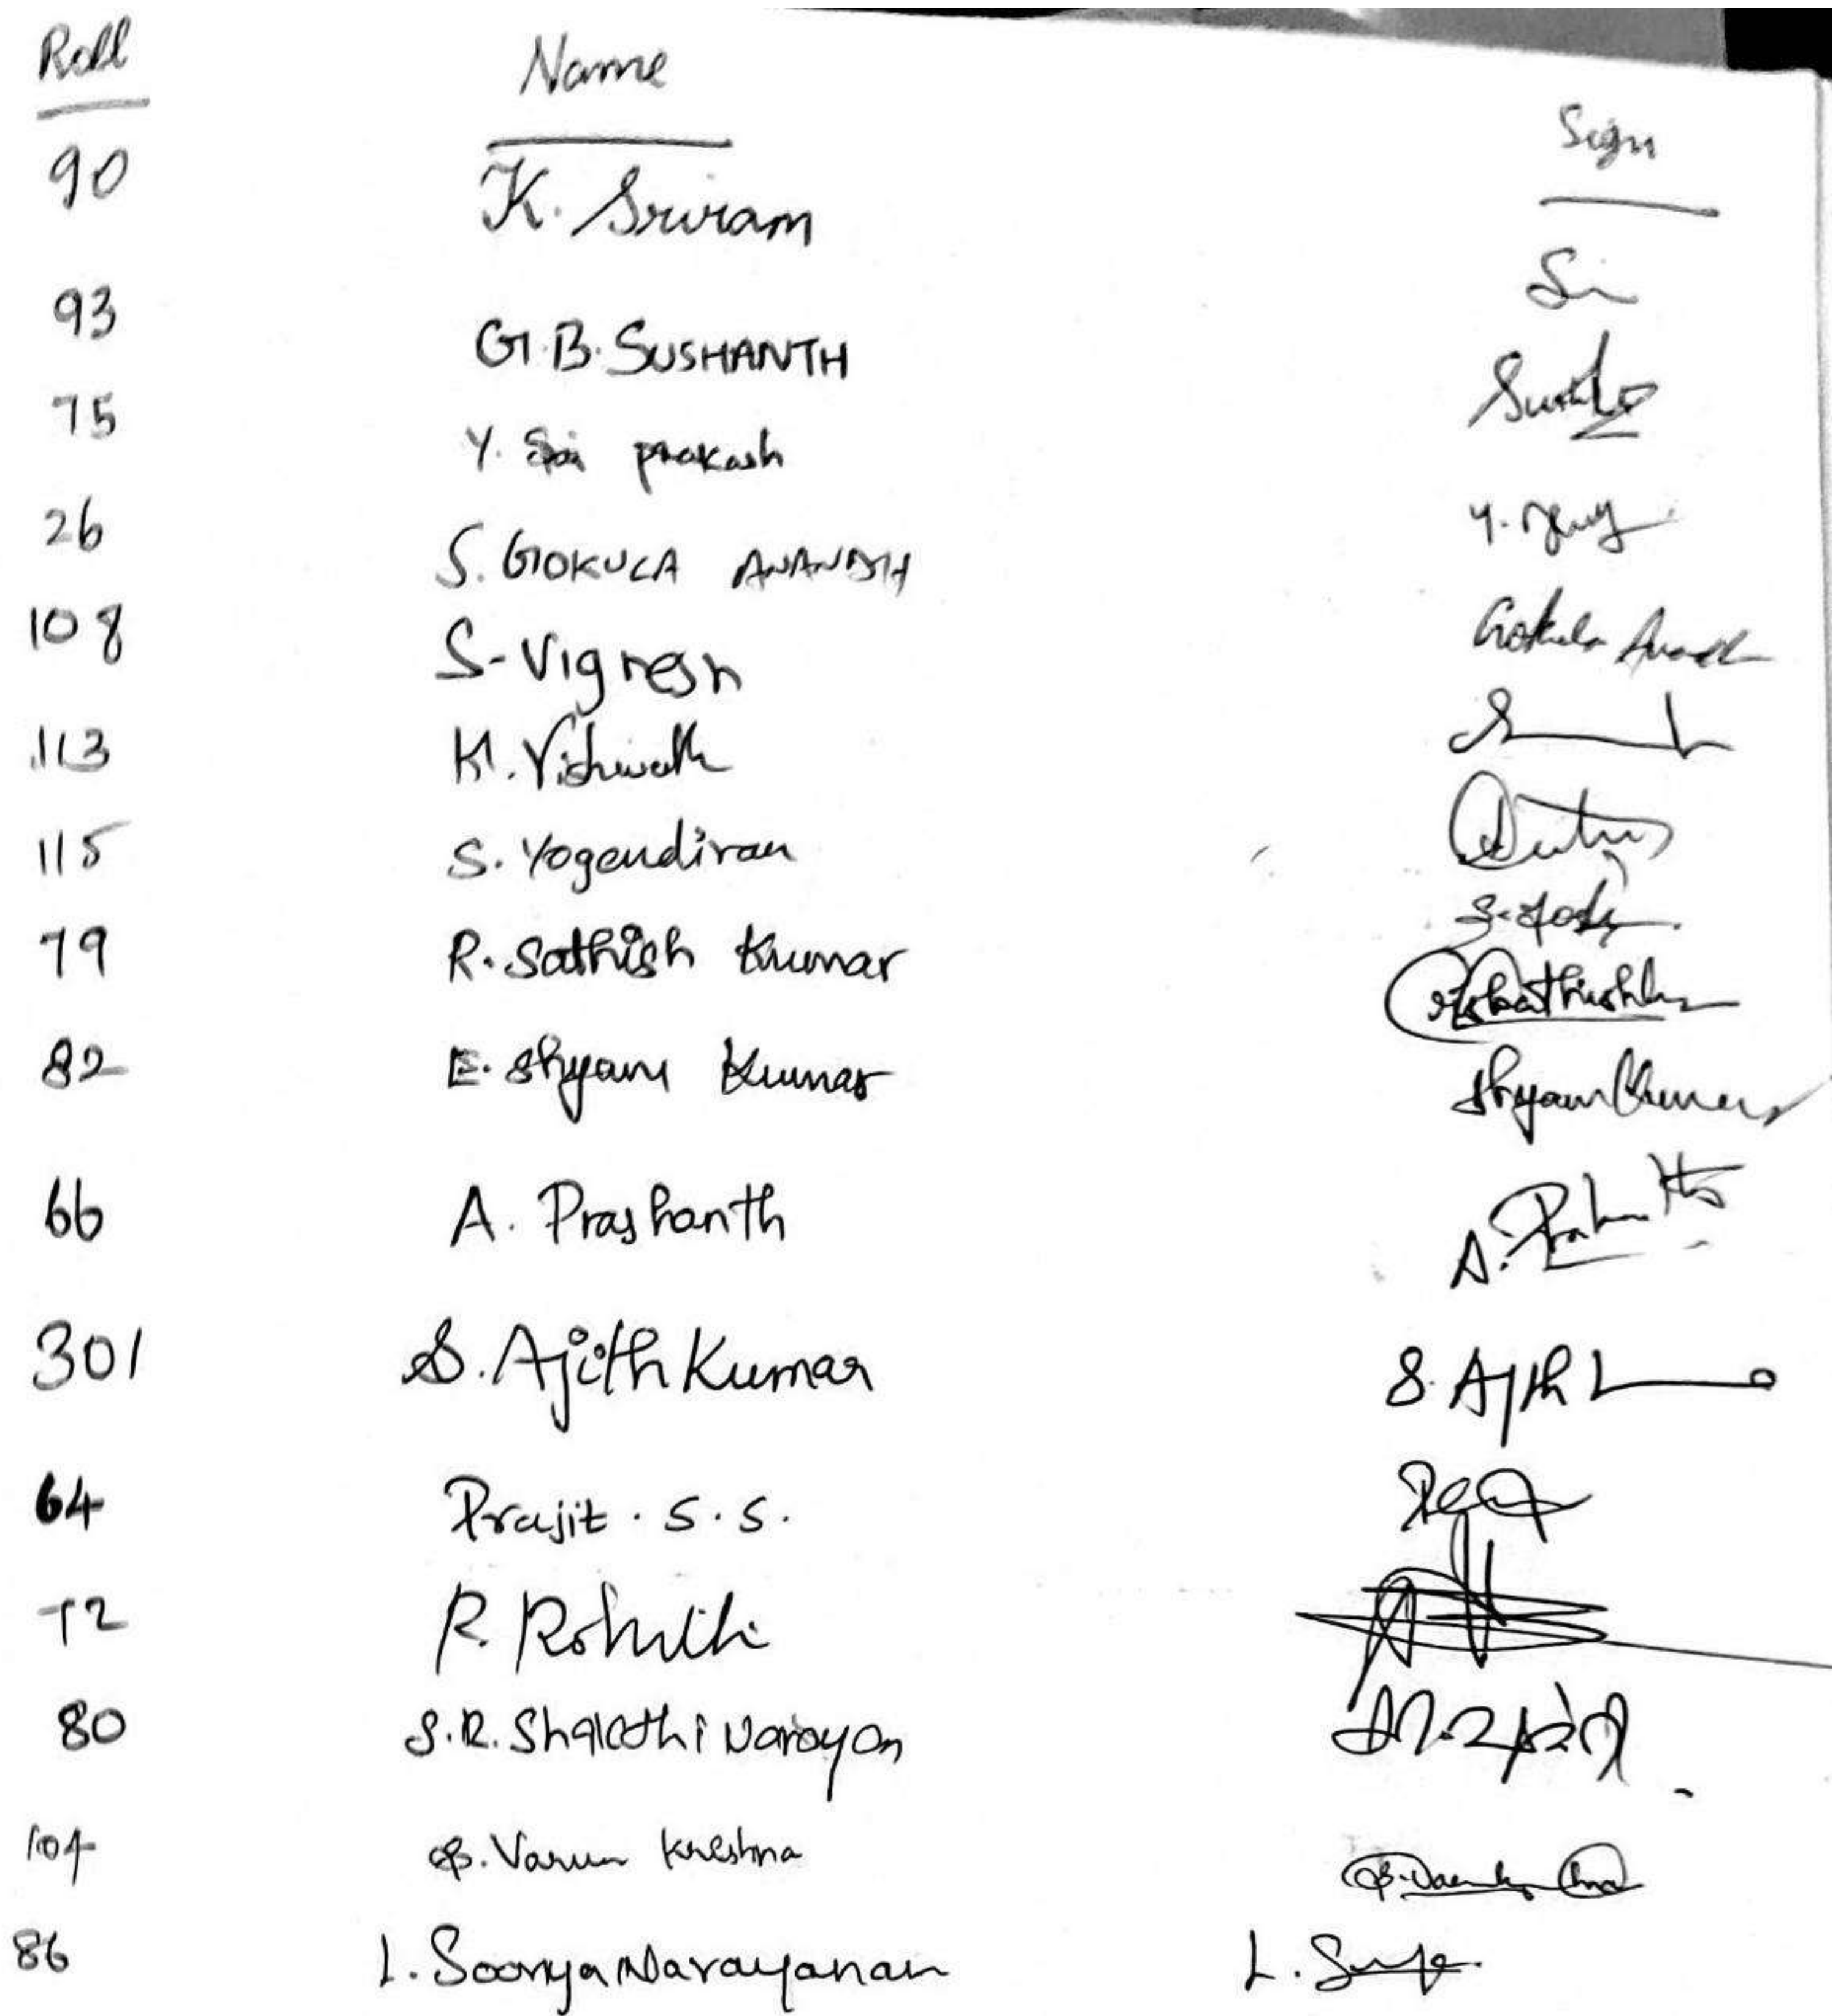 Roll Name Sign
90 K. Sriram
93 G.B. SUSHANTH
75 Y. Sai prakash
26 S. GOKULA ANANDH Gokula Anandh
108 S. Vignesh
113 M. Vishwath
115 S. Yogendiran
79 R. Sathish Kumar
82 E. Shyam Kumar Shyam Kumar
66 A. Prashanth A.
301 S. Ajith Kumar S. Ajith
64 Prajit. S.S.
72 R. Rohith
80 S.R. Shakthi Narayan
104 B. Varun Krishna
86 L. Soorya Narayanan L.